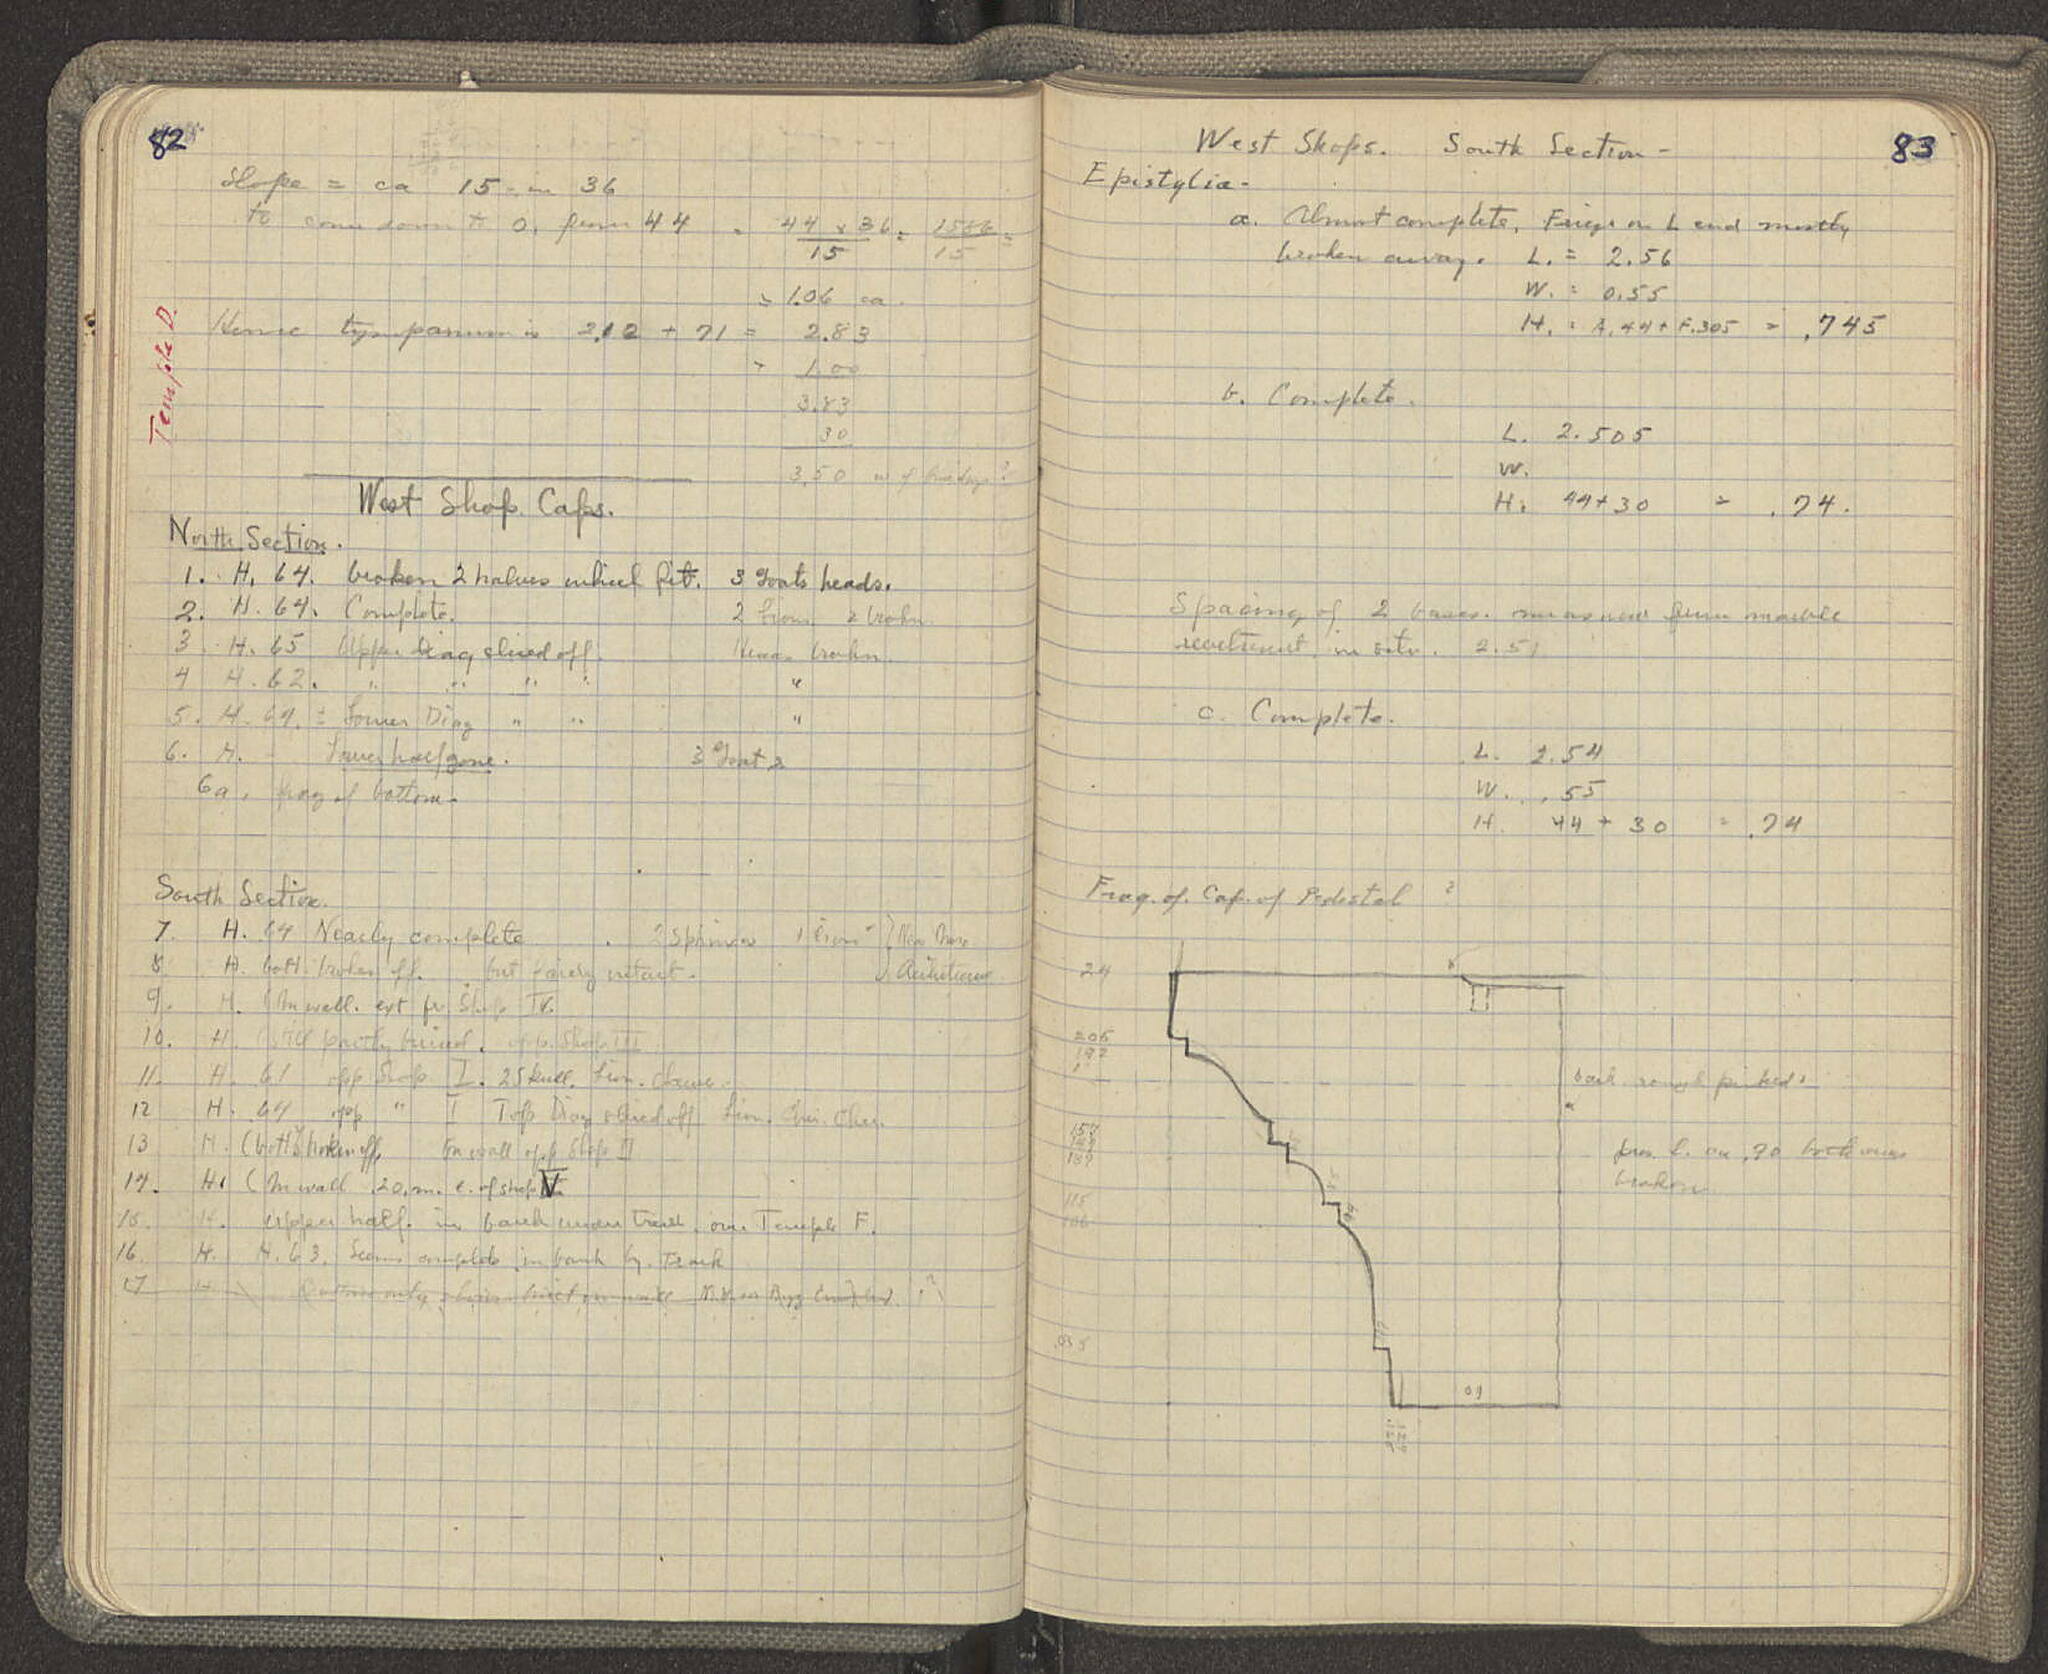 82
Slope = ca 15 in 36
to come down to 0, from 44 = 44 x 36 / 15 = 1586 / 15 =
= 1.06 ca.
Hence tympanum is 2.12 + 71 = 2.83
1.00
3.83
30
3.50 w of
Temple D.
West Shop Caps.
North Section.
1. H. 64. broken 2 halves which fit. 3 Goats heads.
2. H. 64. Complete. 2 Lions 2 brokn.
3. H. 65 Upper Diag sliced off. Heads brokn.
4 H. 62. " " " " "
5. H. 64. ± Lower Diag " " "
6. H. - Lower half gone. 3 Goat 2
6a. frag of bottom -
South Section.
7. H. 64 Nearly complete. 2 Sphinxes 1 Lion
8 H. bott. broken off. but fairly intact.
9. H. (In wall. ext fr. Shop IV.
10. H. (Still partly buried. opp. Shop III
11. H. 61 opp Shop I. 2 Skull. Lion.
12 H. 64 opp " I Top Diag sliced off Lion.
13 H. (bott broken off, In wall opp Shop II
14. H. (In wall 20. m. e. of shop V
15. H. Upper half. in bank under track. over Temple F.
16. H. H. 63. Seems complete in bank by. Track
17 H Bottom only
83
West Shops. South Section -
Epistylia -
a. Almost complete, Frieze on L end mostly
broken away. L. = 2.56
W. = 0.55
H. = A.44 + F.305 = .745
b. Complete.
L. 2.505
W.
H. 44+30 = .74.
Spacing of 2 bases. measured from marble
revetment in situ. 2.51
c. Complete.
L. 2.54
W. .55
H. 44 + 30 = .74
Frag. of. Cap. of Pedestal ?
24
205
192
157
147
139
115
106
.035
01
back rough picked.
pres. L. ca .90 both ends
broken